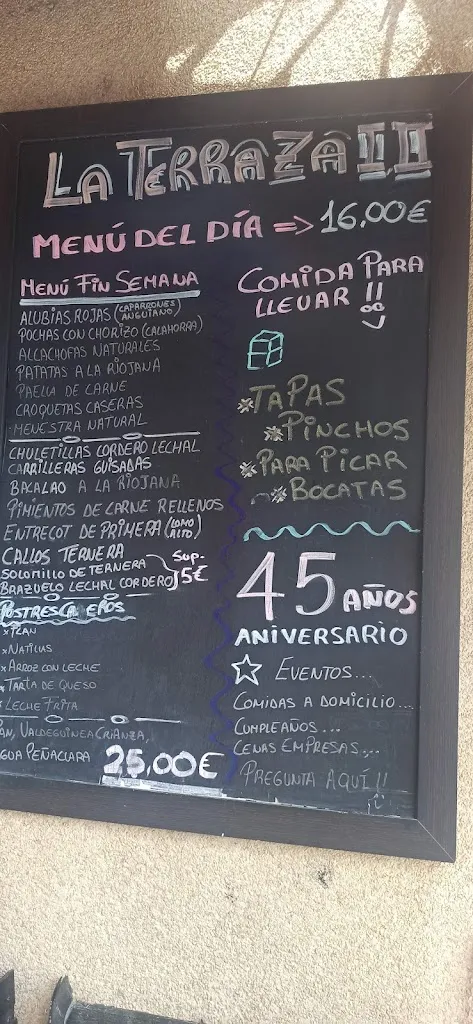 LA TERRAZA III
MENÚ DEL DÍA => 16,00€
MENÚ FIN SEMANA
ALUBIAS ROJAS (CAPARRONES ANGUIANO)
POCHAS CON CHORIZO (CALAHORRA)
ALCACHOFAS NATURALES
PATATAS A LA RIOJANA
PAELLA DE CARNE
CROQUETAS CASERAS
MENESTRA NATURAL
CHULETILLAS CORDERO LECHAL
CARRILLERAS GUISADAS
BACALAO A LA RIOJANA
PIMIENTOS DE CARNE RELLENOS
ENTRECOT DE PRIMERA (LOMO ALTO)
CALLOS TERNERA
SOLOMILLO DE TERNERA
BRAZUELO LECHAL CORDERO
SUP. 5€
POSTRES CASEROS
*FLAN
*NATILLAS
*ARROZ CON LECHE
*TARTA DE QUESO
*LECHE FRITA
PAN, VALDEGUINEA CRIANZA,
AGUA PEÑACLARA 25,00€
COMIDA PARA
LLEVAR !!
*TAPAS
*PINCHOS
*PARA PICAR
*BOCATAS
45 AÑOS
ANIVERSARIO
EVENTOS...
COMIDAS A DOMICILIO...
CUMPLEAÑOS...
CENAS EMPRESAS...
PREGUNTA AQUÍ!!